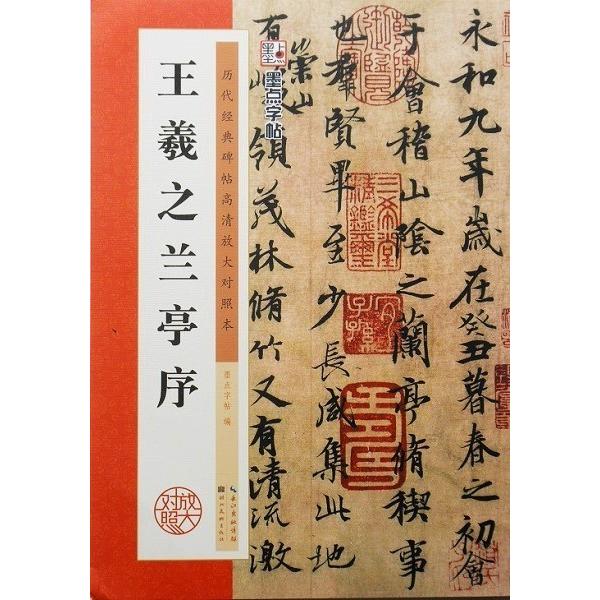 永和九年歲在癸丑暮春之初會
于會稽山陰之蘭亭脩稧事
也羣賢畢至少長咸集此地
有崇山
領茂林脩竹又有清流激
墨点
墨点字帖
历代经典碑帖高清放大对照本
墨点字帖 编
王羲之兰亭序
放大对照
长江出版传媒
湖北美术出版社